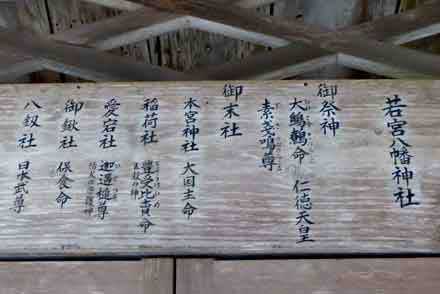 若宮八幡神社
御祭神
大鷦鷯命 仁徳天皇
素戔嗚尊
御末社
本宮神社 大国主命
稲荷社 豊受比売命
五穀の神
愛宕社 迦遇槌尊
防火の守護神
御鍬社 保食命
八釼社 日本武尊